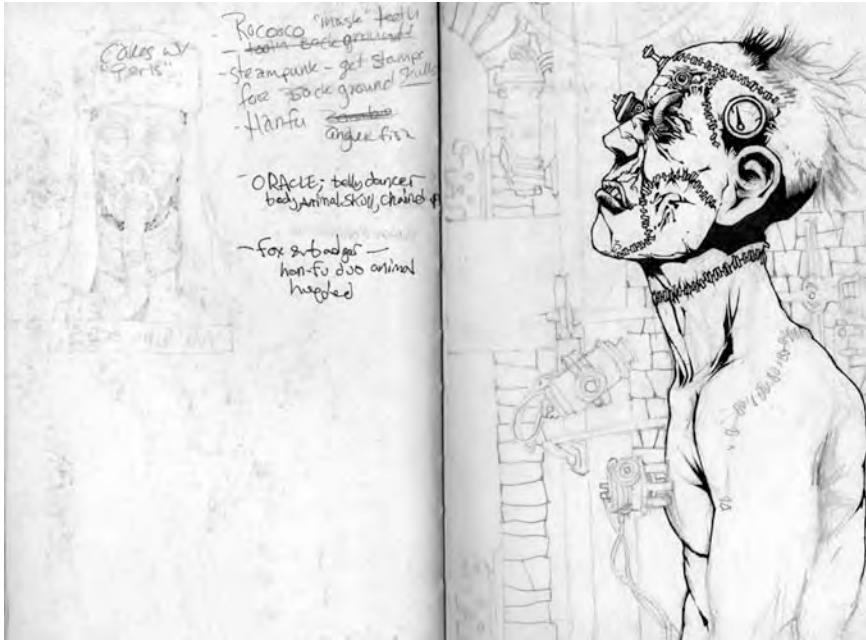 Cakes w/
"Perls"
- Rococo "mask" teeth
- tooth background
- steampunk - get stamps
for background skulls
- Hanfu
angler fish
- ORACLE; belly dancer
body, Animal skull, chained
- fox & badger -
han-fu duo animal
headed